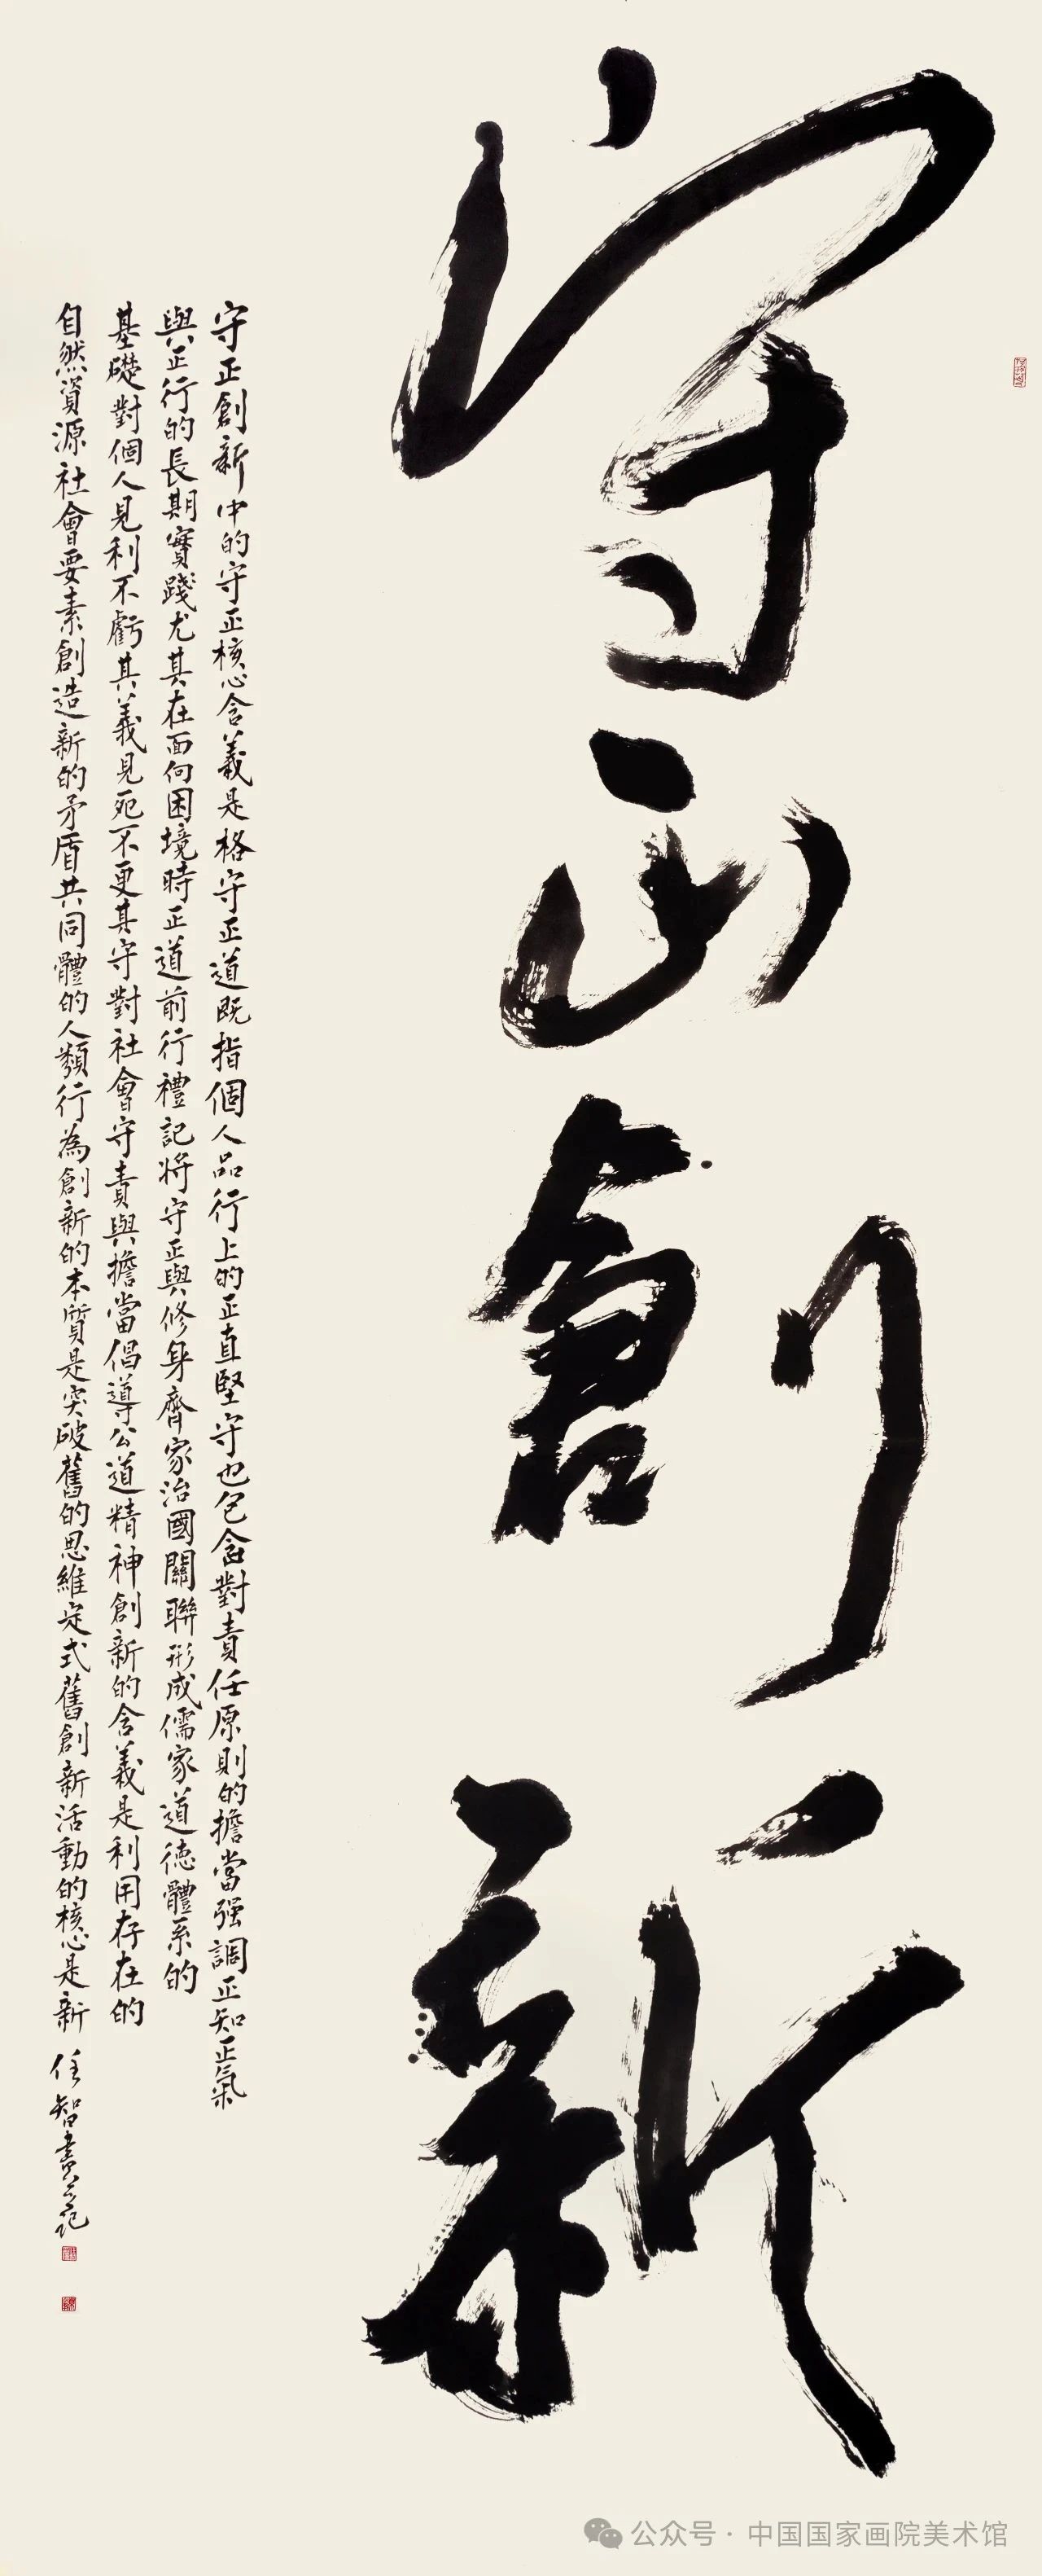 守正創新
守正創新中的守正核心含義是格守正道既指個人品行上的正直堅守也包含對責任原則的擔當强調正知正氣
與正行的長期實踐尤其在面向困境時正道前行禮記將守正與修身齊家治國關聯形成儒家道德體系的
基礎對個人見利不虧其義見死不更其守對社會守責與擔當倡導公道精神創新的含義是利用存在的
自然資源社會要素創造新的矛盾共同體的人類行為創新的本質是突破舊的思維定式舊創新活動的核心是新
任智書并記
公众号·中国国家画院美术馆